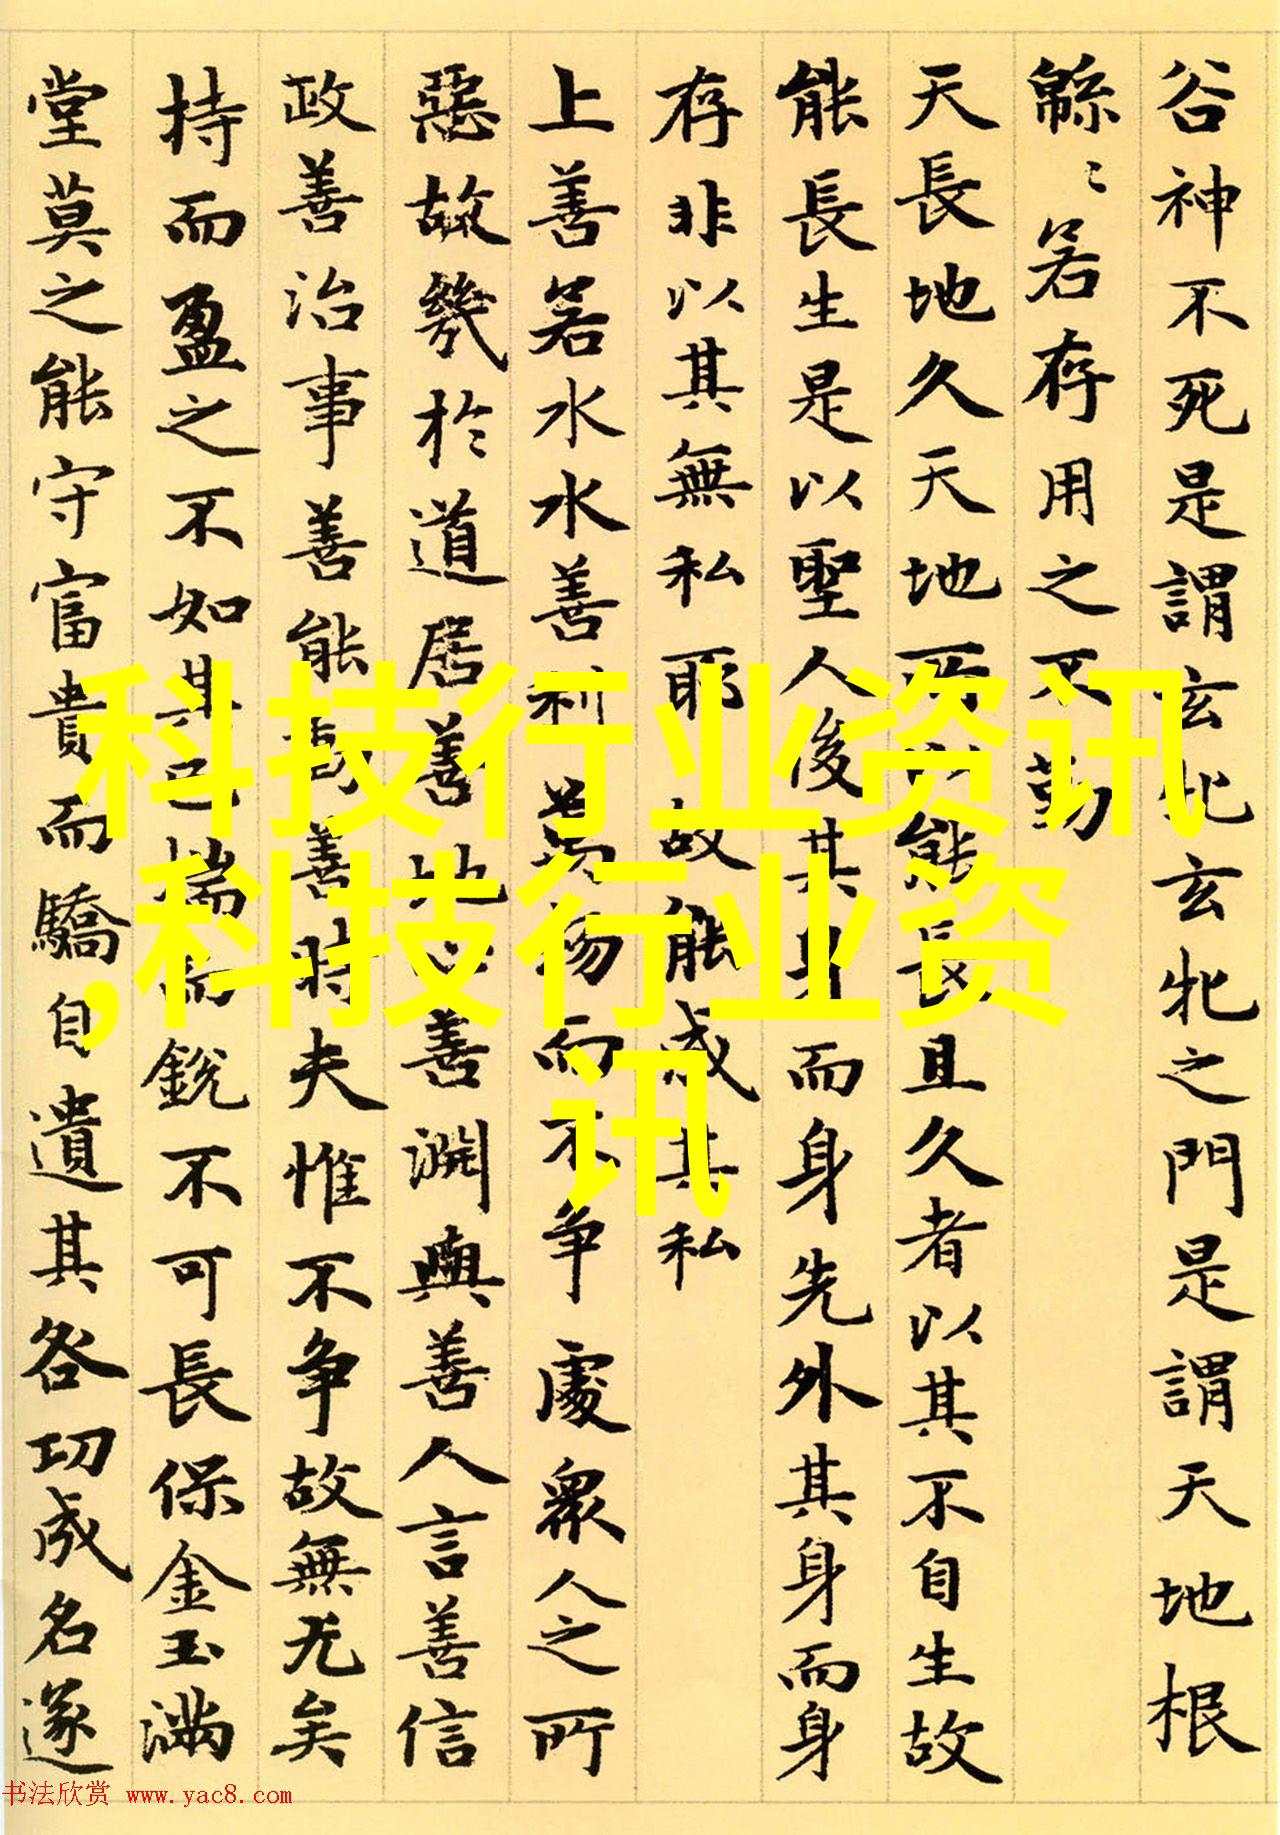 谷神不死是謂玄牝玄牝之門是謂天地根
緜〻若存用之不勤
天長地久天地所以能長且久者以其不自生故
能長生是以聖人後其身而身先外其身而身
存非以其無私耶故能成其私
上善若水水善利萬物而不争處眾人之所
惡故幾於道居善地心善淵與善人言善信
政善治事善能動善時夫惟不争故無尤矣
持而盈之不如其已揣而銳不可長保金玉滿
堂莫之能守富貴而驕自遺其咎功成名遂
科技行业资讯
,科技行业资
讯
书法欣赏 www.yac8.com